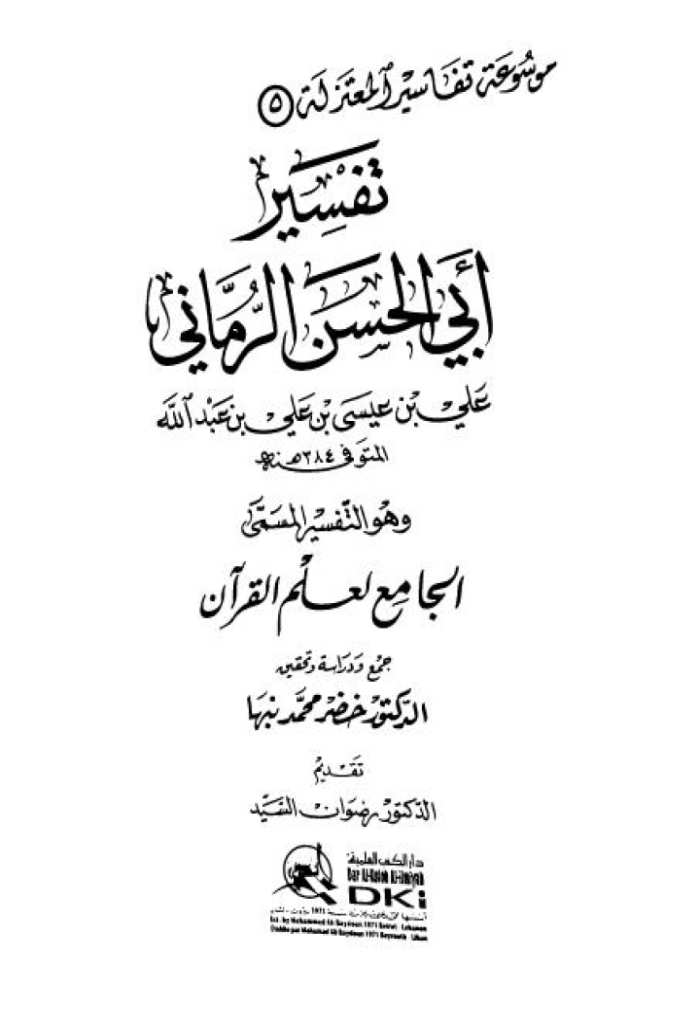 موسوعة تفاسير المعتزلة ٥
تفسير
أبي الحسن الرماني
علي بن عيسى بن علي بن عبد الله
المتوفى ٣٨٤هـ سنة
وهو التفسير المسمى
الجامع لعلم القرآن
جمع ودراسة وتحقيق
الدكتور خضر محمد نبها
تقديم
الدكتور رضوان السيد
دار الكتب العلمية
Dar Al-Kotob Al-ilmiyah
DKi
1971 بيروت - لبنان
Est. by Mohammad Ali Baydoun 1971 Beirut - Lebanon
Etablie par Mohamad Ali Baydoun 1971 Beyrouth - Liban